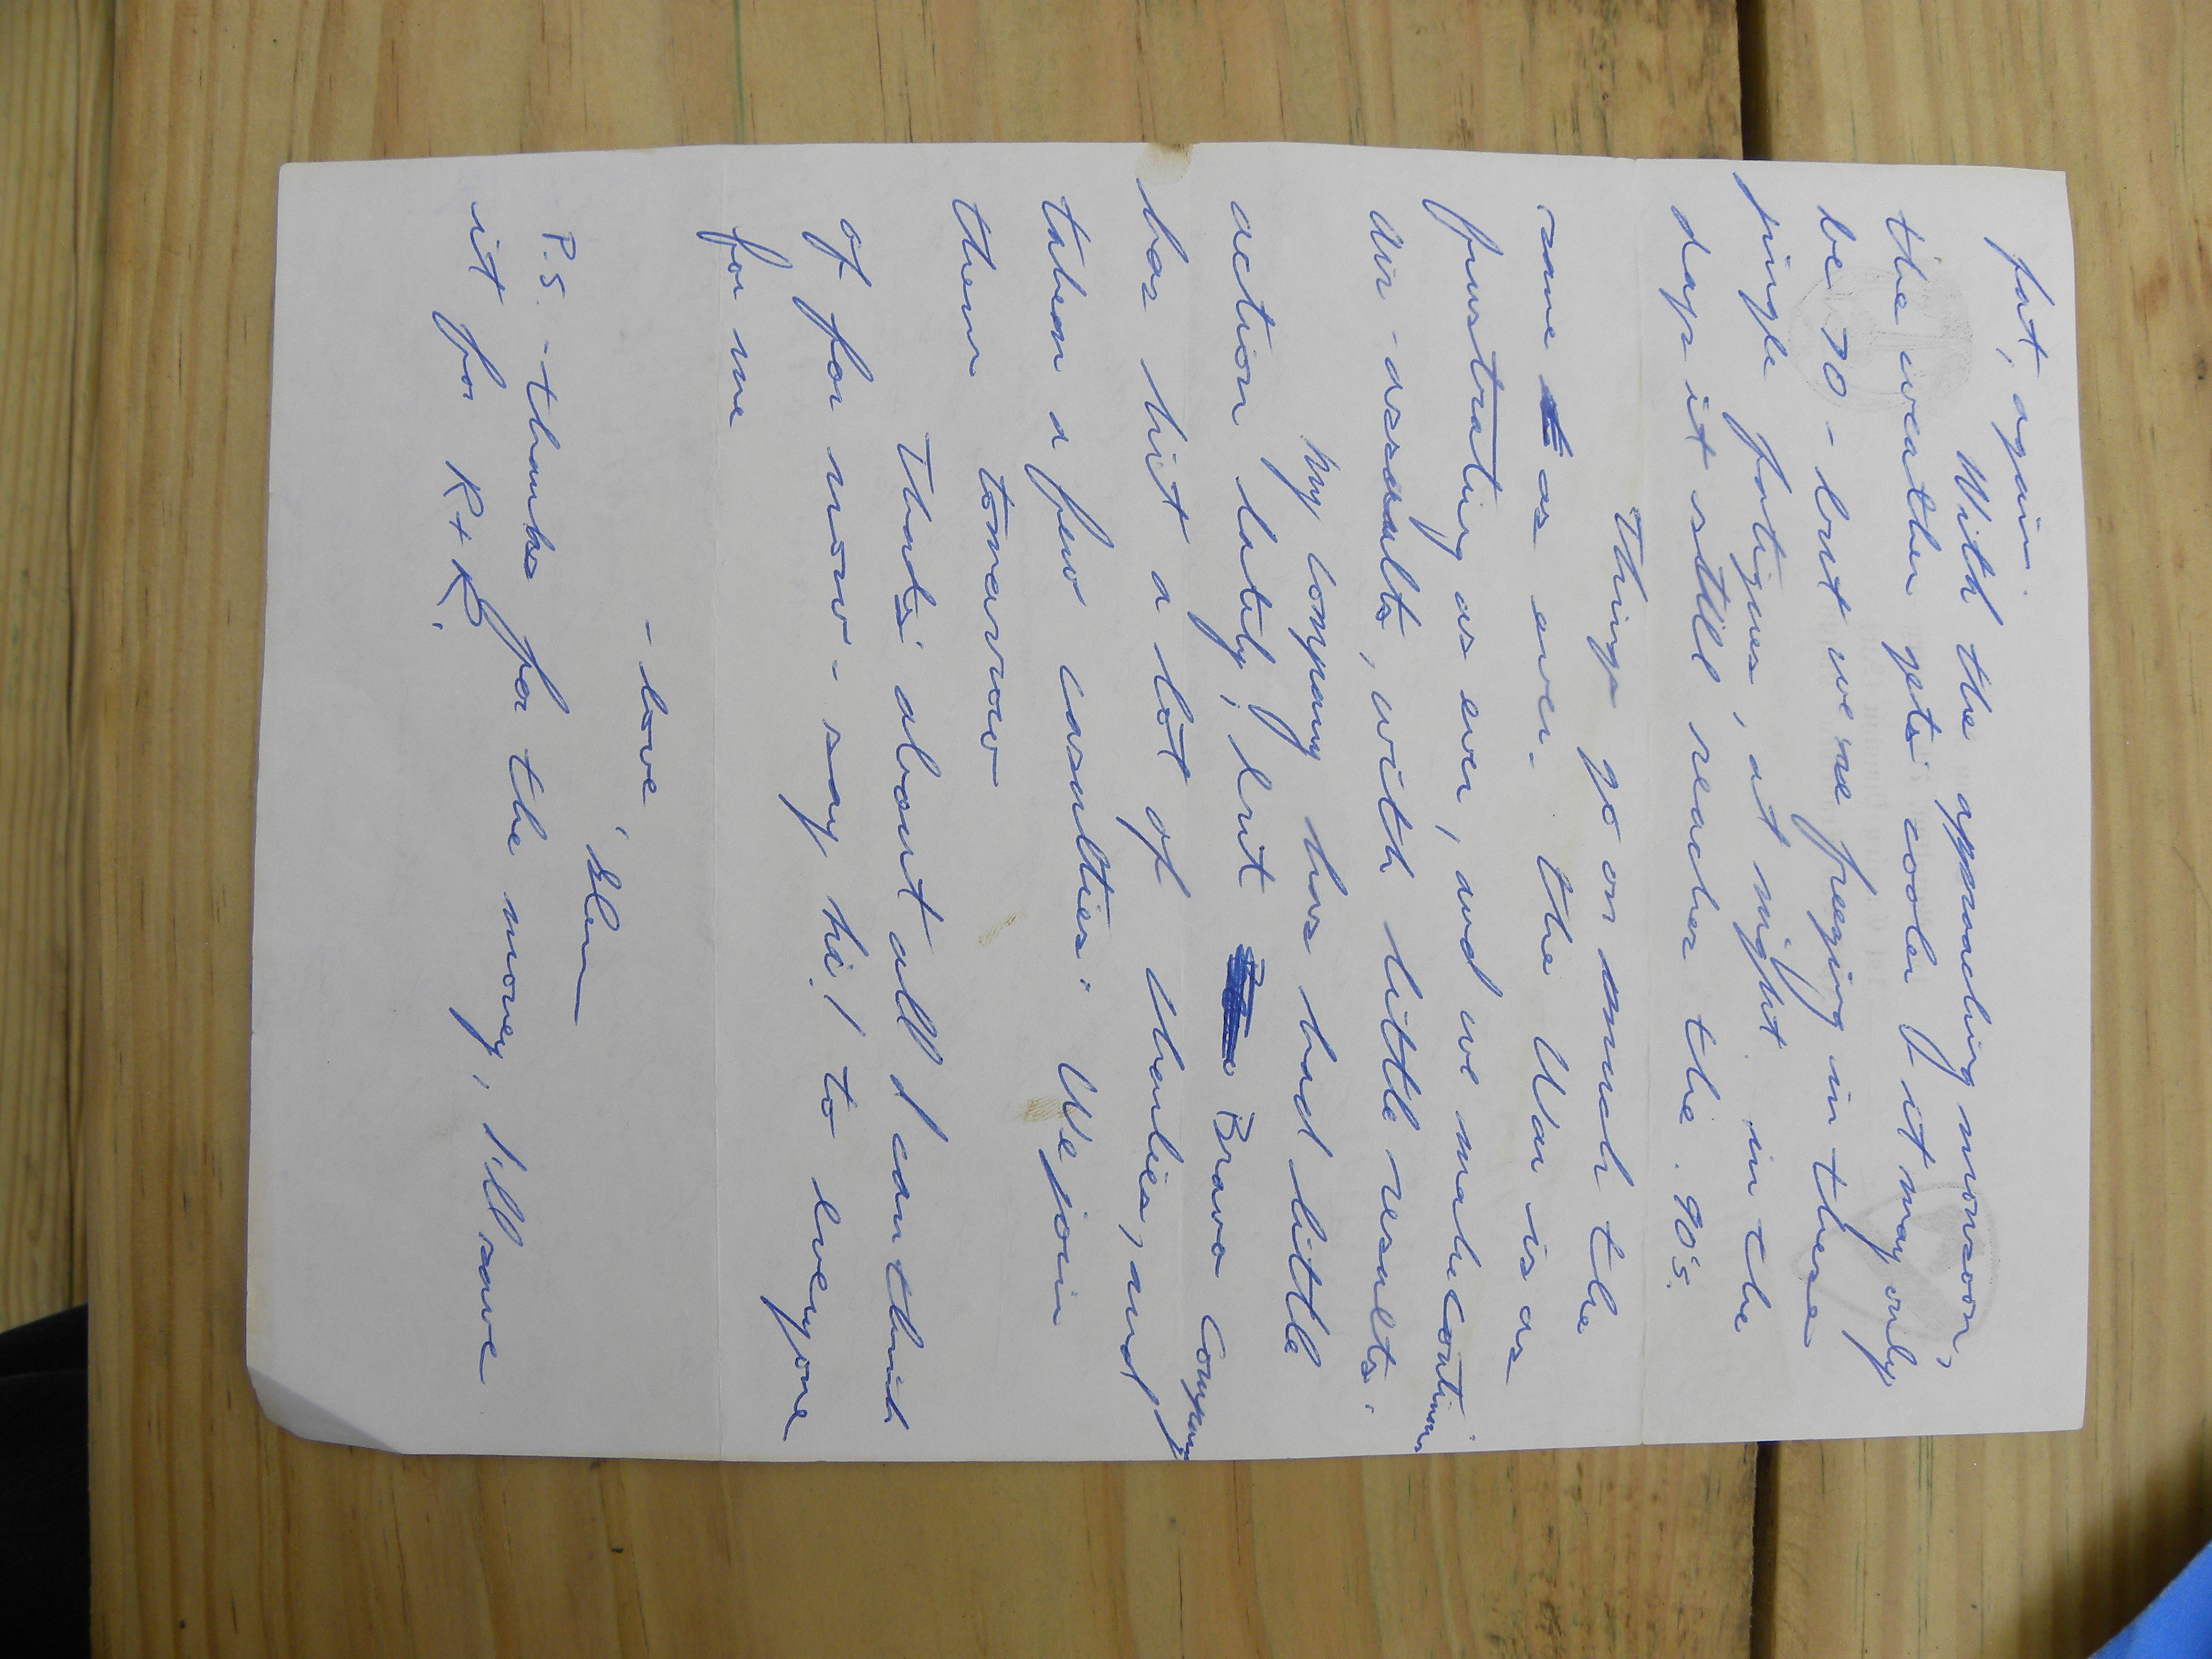 fat, again.
With the approaching monsoon,
the weather gets cooler, it may only
be 70 - but we are freezing in these
jungle fatigues, at night. in the
days it still reaches the 90's.
Things go on much the
same as ever. the War is as
frustrating as ever, and we make continuous
air-assaults, with little results.
My company has had little
action lately, but Bravo Company
has hit a lot of charlies, and
taken a few casulties. We join
them tomorrow
Thats about all I can think
of for now - say hi! to everyone
for me
- love,
Glen
P.S. - thanks for the money, I'll save
it for R+R.